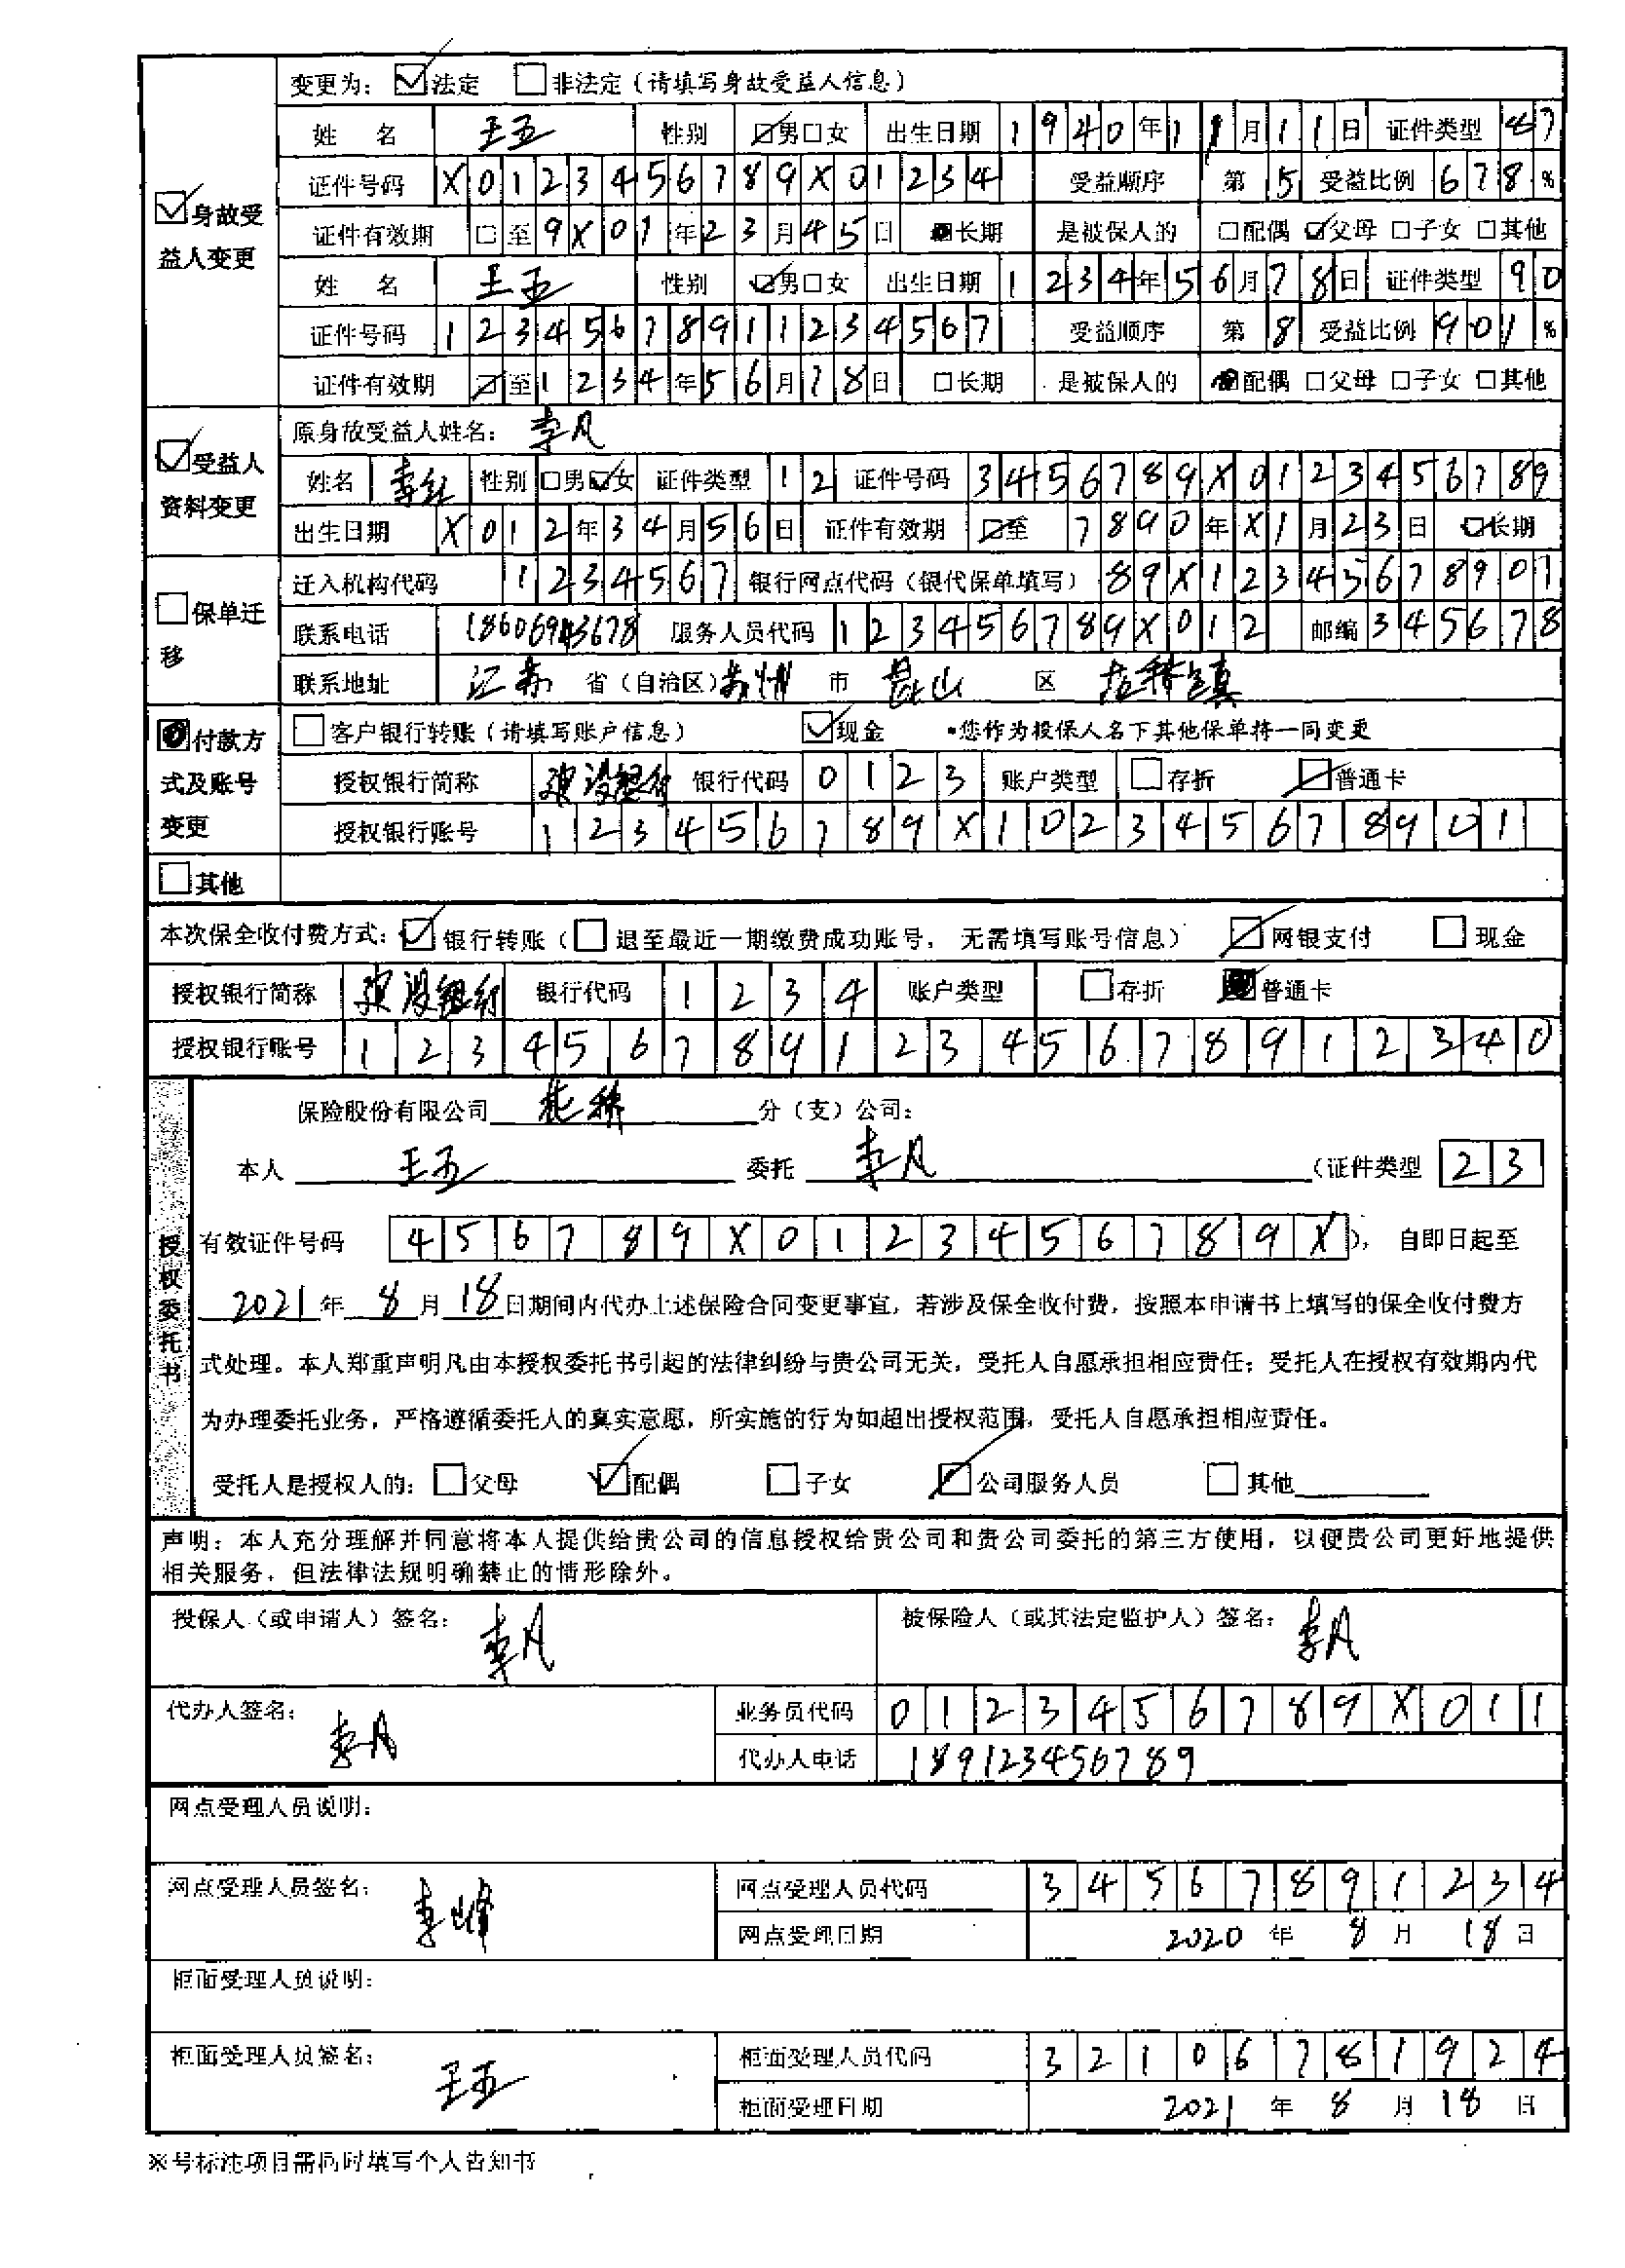 变更为： 法定 非法定（请填写身故受益人信息）
姓 名 王五 性别 男 女 出生日期 1940年11月11日 证件类型 87
证件号码 X0123456789X01234 受益顺序 第5 受益比例 678%
身故受益人变更
证件有效期 至9X01年23月45日 长期 是被保人的 配偶 父母 子女 其他
姓 名 王五 性别 男 女 出生日期 1234年56月78日 证件类型 90
证件号码 12345678911234567 受益顺序 第8 受益比例 901%
证件有效期 至1234年56月78日 长期 是被保人的 配偶 父母 子女 其他
受益人资料变更
原身故受益人姓名： 李凡
姓名 李红 性别 男 女 证件类型 12 证件号码 3456789X0123456789
出生日期 X012年34月56日 证件有效期 至 7890年X1月23日 长期
保单迁移
迁入机构代码 1234567 银行网点代码（银代保单填写） 89X12345678901
联系电话 服务人员代码 123456789X012 邮编 345678
联系地址 江苏 省（自治区） 苏州 市 昆山 区 花桥镇
付款方式及账号变更
客户银行转账（请填写账户信息） 现金 *您作为投保人名下其他保单将一同变更
授权银行简称 建设银行 银行代码 0123 账户类型 存折 普通卡
授权银行账号 123456789X102345678901
其他
本次保全收付费方式： 银行转账（ 退至最近一期缴费成功账号， 无需填写账号信息） 网银支付 现金
授权银行简称 建设银行 银行代码 1234 账户类型 存折 普通卡
授权银行账号 12345678912345678912340
授权委托书
保险股份有限公司 花桥 分（支）公司：
本人 王五 委托 李凡 （证件类型 23
有效证件号码 456789X0123456789X ）， 自即日起至
2021年 8月18日期间内代办上述保险合同变更事宜，若涉及保全收付费，按照本申请书上填写的保全收付费方
式处理。本人郑重声明凡由本授权委托书引起的法律纠纷与贵公司无关，受托人自愿承担相应责任；受托人在授权有效期内代
为办理委托业务，严格遵循委托人的真实意愿，所实施的行为如超出授权范围，受托人自愿承担相应责任。
受托人是授权人的： 父母 配偶 子女 公司服务人员 其他
声明：本人充分理解并同意将本人提供给贵公司的信息授权给贵公司和贵公司委托的第三方使用，以便贵公司更好地提供
相关服务，但法律法规明确禁止的情形除外。
投保人（或申请人）签名： 李凡 被保险人（或其法定监护人）签名： 李凡
代办人签名： 李凡 业务员代码 0123456789X011
代办人电话 189123456789
网点受理人员说明：
网点受理人员签名： 李峰 网点受理人员代码 34567891234
网点受理日期 2020 年 8 月 18 日
柜面受理人员说明：
柜面受理人员签名： 王五 柜面受理人员代码 32106781924
柜面受理日期 2021 年 8 月 18 日
※号标注项目需同时填写个人告知书